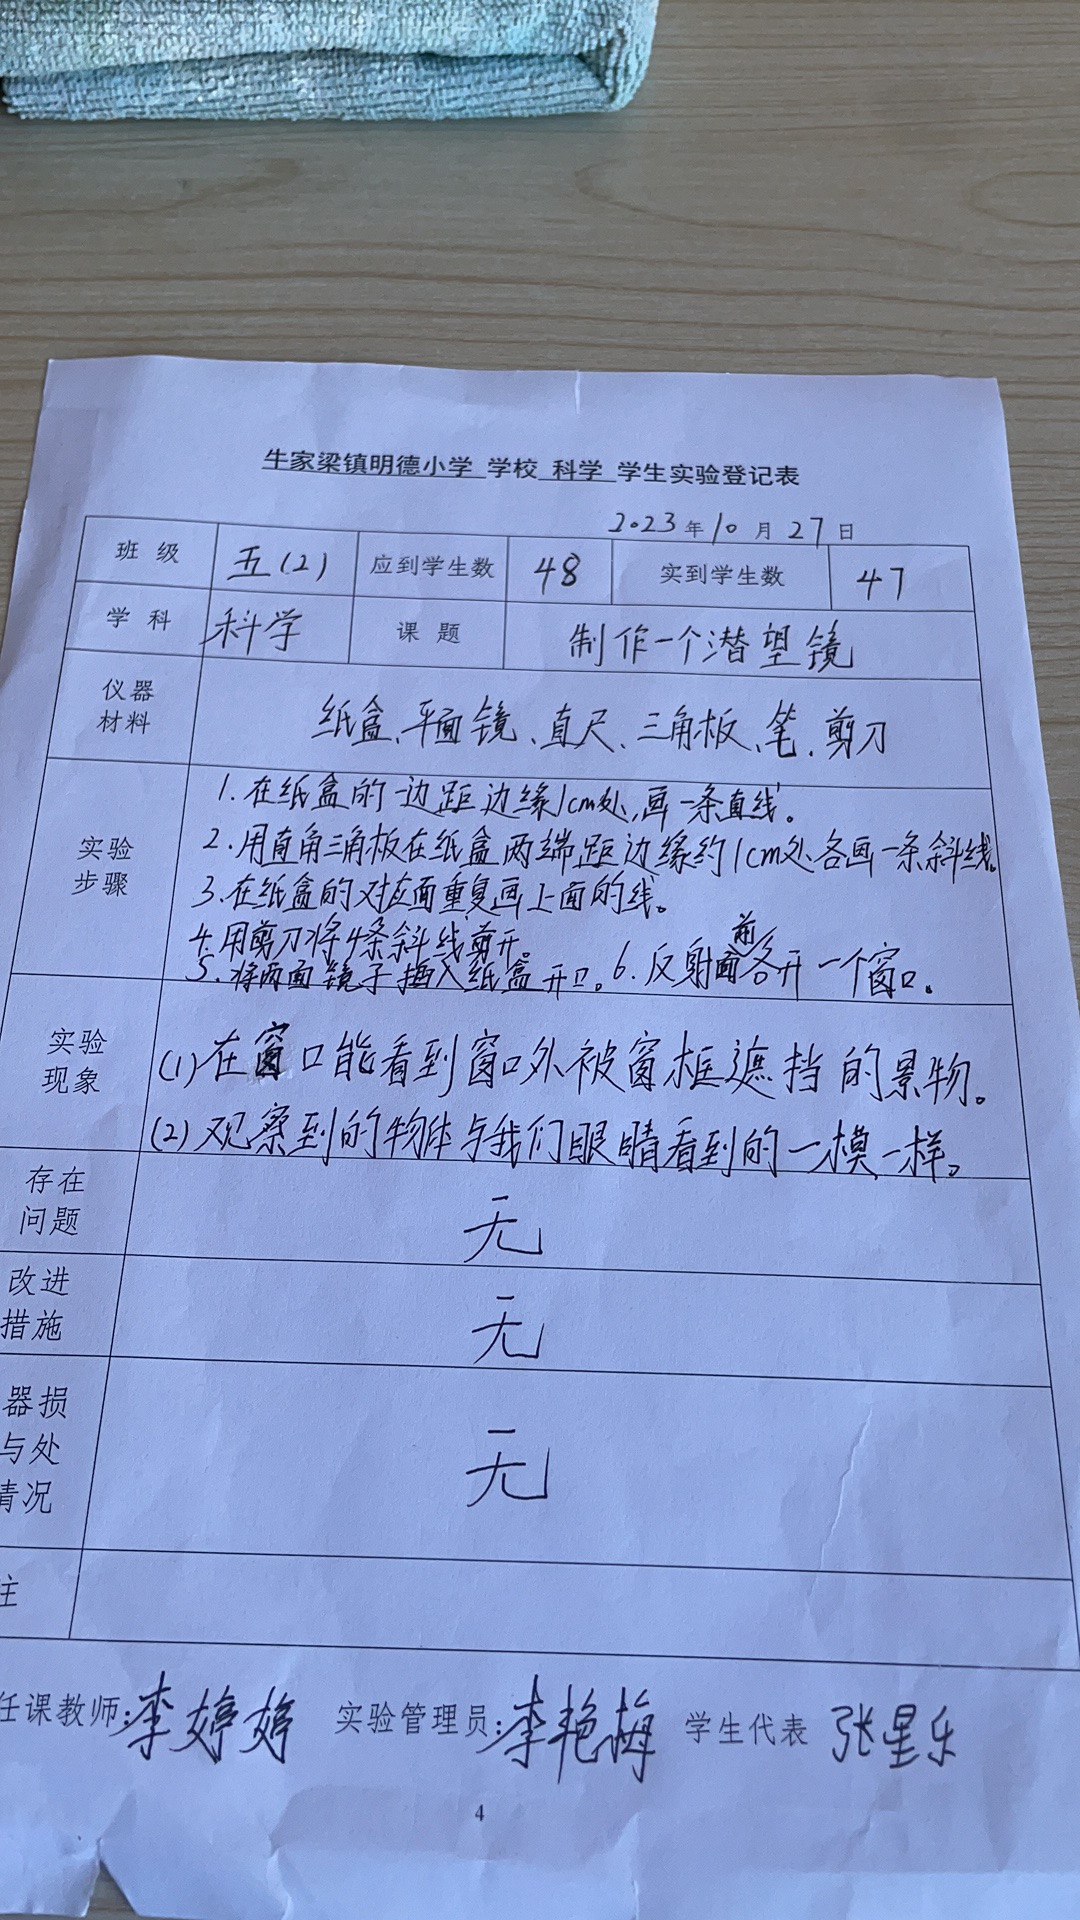 牛家梁镇明德小学 学校 科学 学生实验登记表
2023年10月27日
班级 五(2) 应到学生数 48 实到学生数 47
学科 科学 课题 制作一个潜望镜
仪器
材料
纸盒、平面镜、直尺、三角板、笔、剪刀
实验
步骤
1.在纸盒的一边距边缘1cm处,画一条直线。
2.用直角三角板在纸盒两端距边缘约1cm处各画一条斜线。
3.在纸盒的对应面重复画上面的线。
4.用剪刀将4条斜线剪开。
5.将两面镜子插入纸盒开口。6.反射面前各开一个窗口。
实验
现象
(1)在窗口能看到窗口外被窗框遮挡的景物。
(2)观察到的物体与我们眼睛看到的一模一样。
存在
问题
无
改进
措施
无
器损
与处
情况
无
注
任课教师:李婷婷 实验管理员:李艳梅 学生代表 张星乐
4